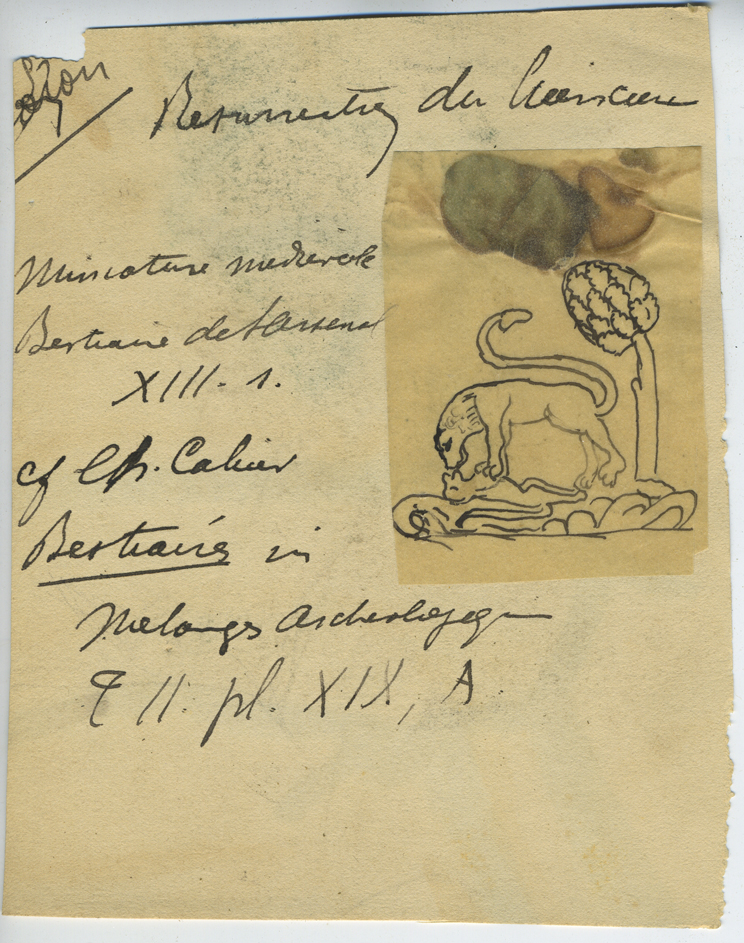 Lion
Resurrection du lionceau
Miniature medievale
Bestiaire de l'Arsenal
XIII. s.
cf Ch. Cahier
Bestiaires in
Melanges Archeologiques
T II. pl. XIX, A